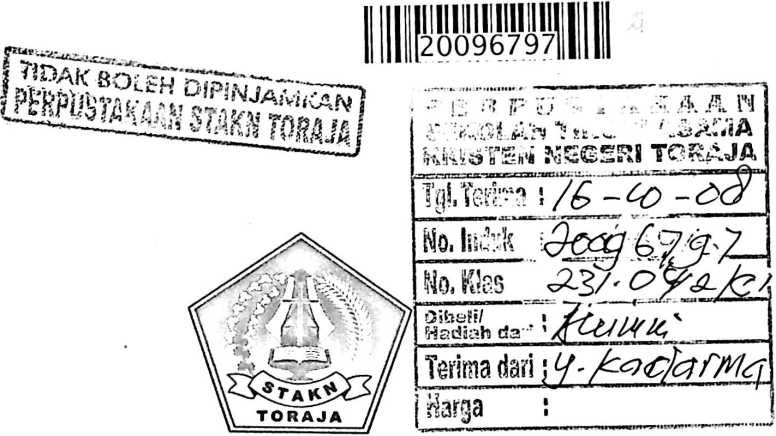 20096797
TIDAK BOLEH DIPINJAMKAN
PERPUSTAKAAN STAKN TORAJA
PERPUSTAKAAN
SEKOLAH TINGGI AGAMA
KRISTEN NEGERI TORAJA
Tgl. Terima : 16-10-08
No. Induk 20096797
No. Klas 231.042
Dibeli/
Hadiah da :
Terima dari : Y. Kadarma
Harga :
STAKN
TORAJA